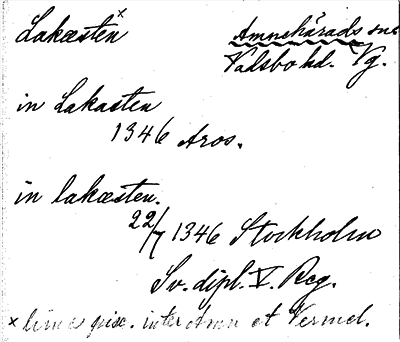 Lakæsten x Amnehärads sn
Vadsbo hd. Vg.
in Lakasten
1346 Aros.
in lakæsten.
22/7 1346 Stockholm
Sv. dipl. V. Reg.
x lim e pisc. inter Amn et Vermel.